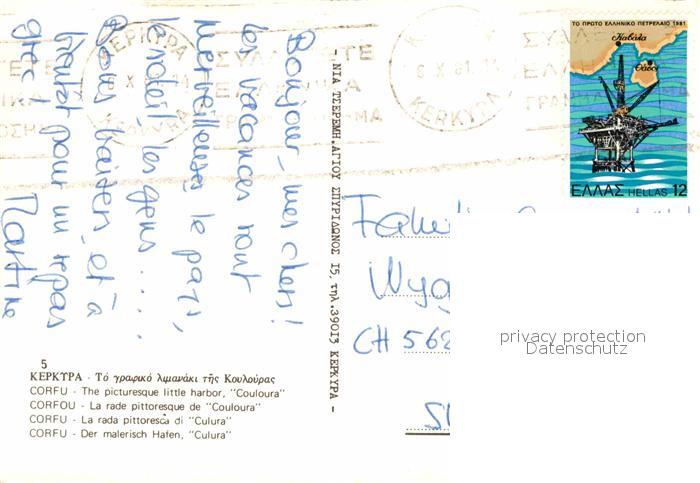 Bonjour, mes chers!
les vacances sont
merveilleuses, le pays,
l'endroit, les gens . . . .
Bons baisers, et à
bientôt pour un repas
grec!
ΚΕΡΚΥΡΑ
ΚΕΡΚΥΡΑ
ΤΟ ΠΡΩΤΟ ΕΛΛΗΝΙΚΟ ΠΕΤΡΕΛΑΙΟ 1981
Καβάλα
Θάσος
ΕΛΛΑΣ HELLAS 12
- ΝΙΑ ΤΣΕΡΕΜΗ, ΑΓΙΟΥ ΣΠΥΡΙΔΩΝΟΣ 15, τηλ. 39013 ΚΕΡΚΥΡΑ -
CH 562
privacy protection
Datenschutz
5
ΚΕΡΚΥΡΑ - Τό γραφικό λιμανάκι τῆς Κουλούρας
CORFU - The picturesque little harbor, "Couloura"
CORFOU - La rade pittoresque de "Couloura"
CORFU - La rada pittoresca di "Culura"
CORFU - Der malerisch Hafen, "Culura"